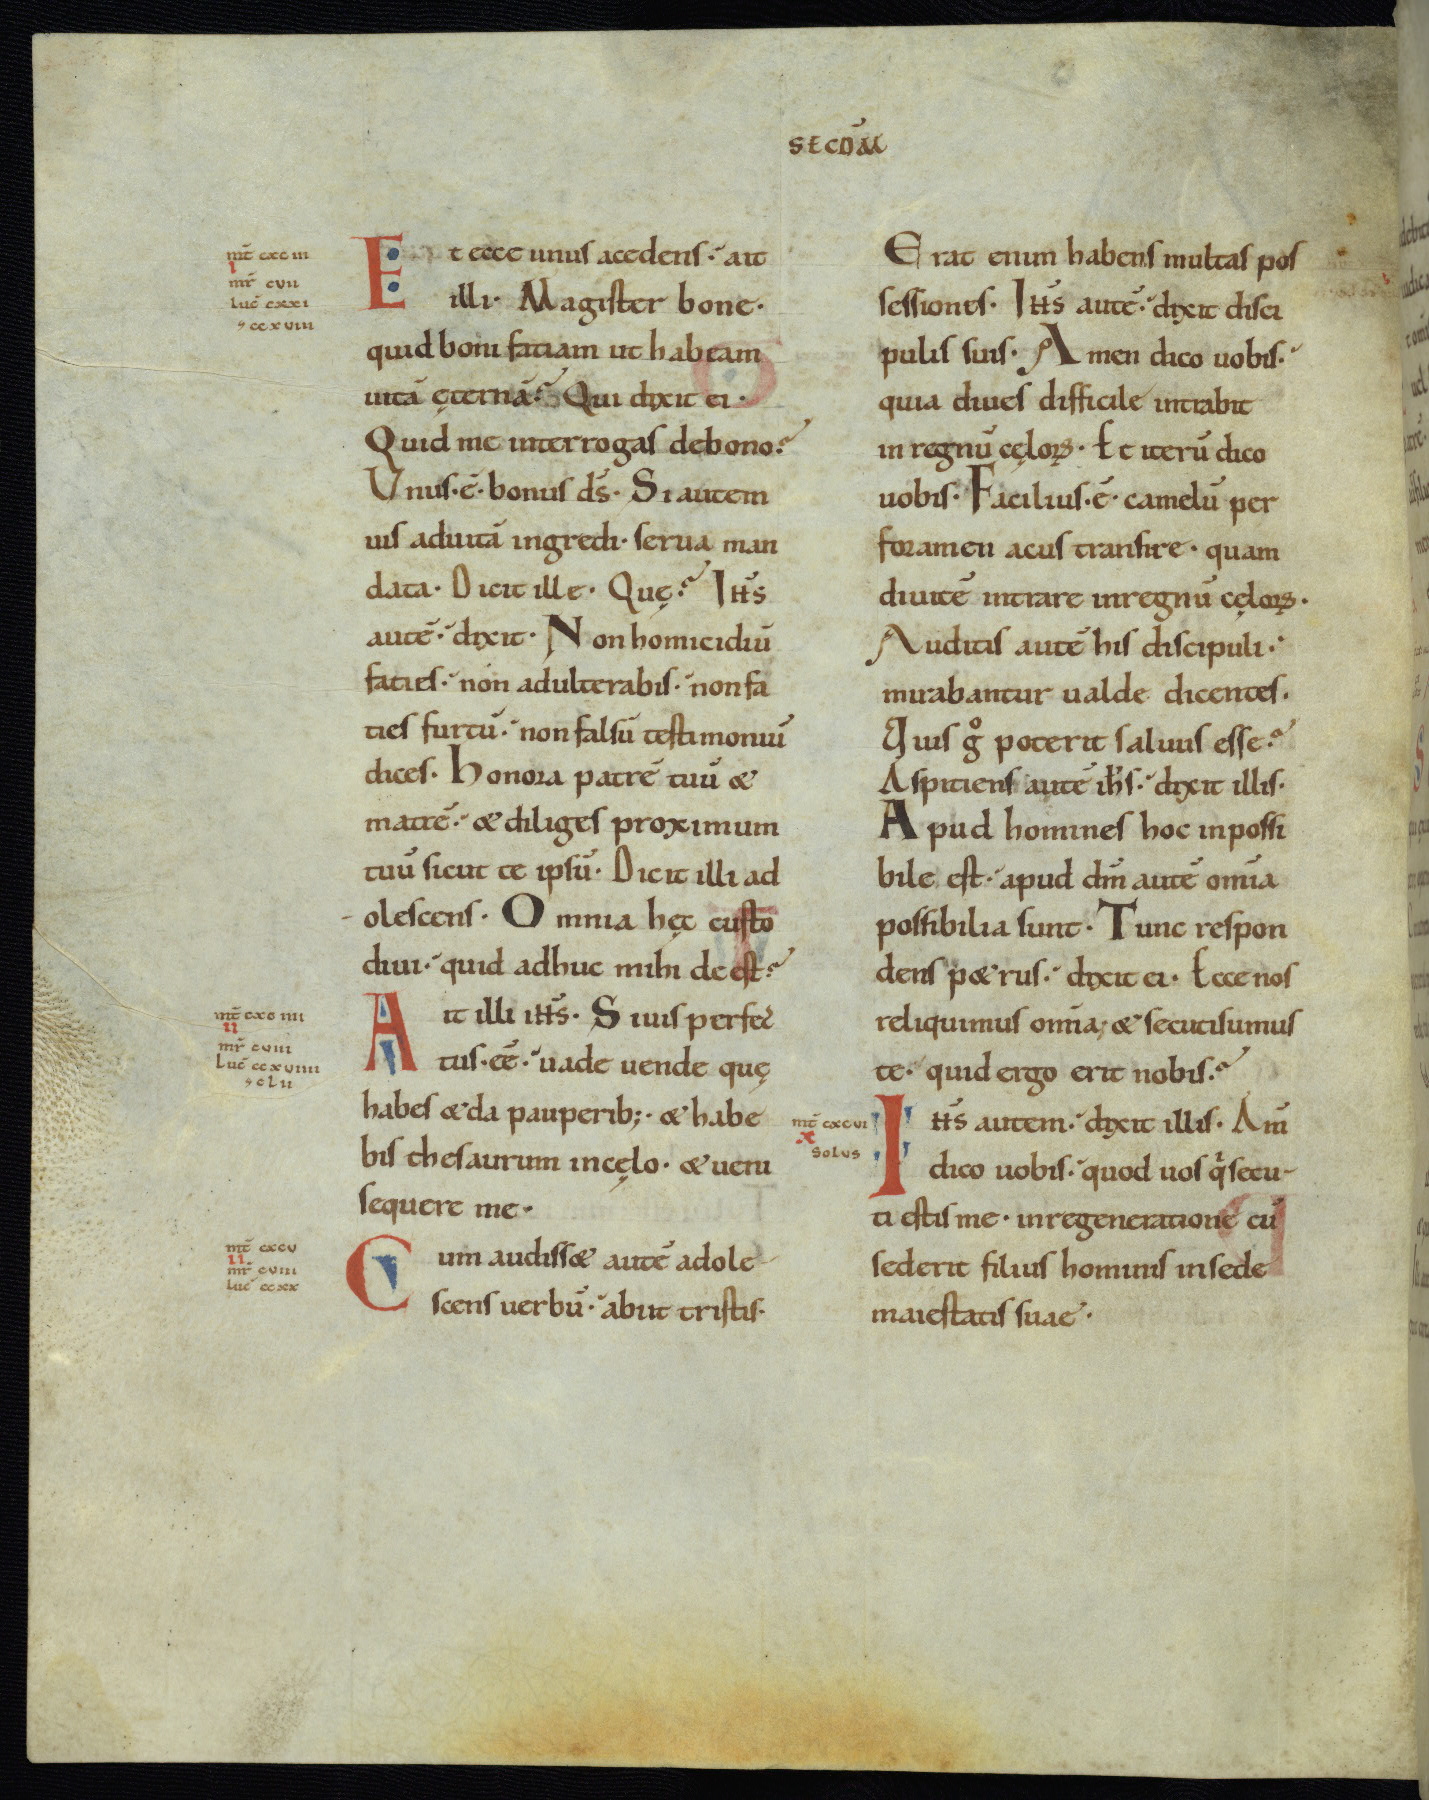 SECDM̄
mt̄ cxciii
i
mr̄ cvii
luc̄ cxxi
⁊ ccxviii
Et ecce unus accedens·́ ait
illi· Magister bone·
quid boni faciam ut habeam
uitā ęternā? Qui dixit ei·
Quid me interrogas de bono?
Vnus·ē· bonus ds̄· Si autem
uis ad uitā ingredi· serua man
data· Dicit ille· Quę? Ihs̄
autē·́ dixit· Non homicidiū
facies·́ non adulterabis·́ non fa
cies furtū·́ non falsū testimoniū
dices· Honora patrē tuū &
matrē·́ & diliges proximum
tuū sicut te ipsū· Dicit illi ad
olescens· Omnia hęc custo
diui·́ quid adhuc mihi deest?
mt̄ cxciiii
ii
mr̄ cviii
Luc̄ ccxviiii
solu
Ait illi ihs̄· Si uis perfec
tus·eē·́ uade uende quę
habes & da pauperib;· & habe
bis thesaurum in cęlo· & ueni
sequere me·
mt̄ cxcv
ii
mr̄ cviii
luc̄ ccxx
Cum audiss& autē adole
scens uerbū·́ abiit tristis·
Erat enim habens multas pos
sessiones· Ihs̄ autē·́ dixit disci
pulis suis· Amen dico uobis·́
quia diues difficile intrabit
in regnū cęloꝝ· Et iterū dico
uobis· Facilius·ē· camelū per
foramen acus transire· quam
diuitē intrare in regnū cęloꝝ·
Auditis autē his discipuli·́
mirabantur ualde dicentes·
Quis gͦ poterit saluus esse?
Aspiciens autē ihs̄·́ dixit illis·
Apud homines hoc inpossi
bile est·́ apud dm̄ autē om̄ia
possibilia sunt· Tunc respon
dens p&rus·́ dixit ei· Ecce nos
reliquimus om̄ia; & secuti sumus
te·́ quid ergo erit nobis?
mt̄ cxcvi
x
solus
Ihs̄ autem·́ dixit illis· Am̄
dico uobis·́ quod uos qͥ secu-
ti estis me· in regeneratione cū
sederit filius hominis in sede
maiestatis suae·